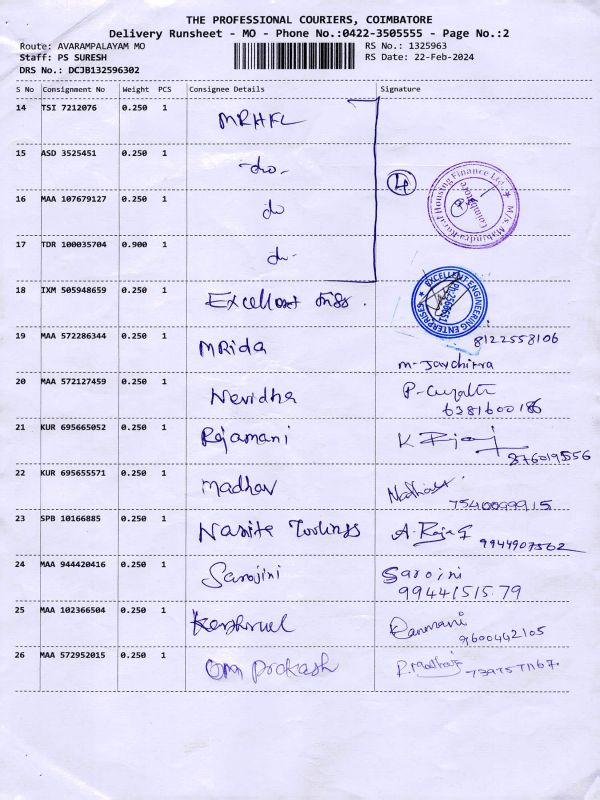 THE PROFESSIONAL COURIERS, COIMBATORE
Delivery Runsheet - MO - Phone No.:0422-3505555 - Page No.:2
Route: AVARAMPALAYAM MO RS No.: 1325963
Staff: PS SURESH RS Date: 22-Feb-2024
DRS No.: DCJB132596302
S No Consignment No Weight PCS Consignee Details Signature
14 TSI 7212076 0.250 1 MRHFL
15 ASD 3525451 0.250 1 -do-
4
M/s. Mahindra Rural Housing Finance Ltd.
Coimbatore
16 MAA 107679127 0.250 1 do
17 TDR 100035704 0.900 1 do-
18 IXM 505948659 0.250 1 Excellent
EXCELLENT ENGINEERING ENTERPRISES
19 MAA 572286344 0.250 1 MRida 8122558106
20 MAA 572127459 0.250 1 Nevidha P-
6381600186
21 KUR 695665052 0.250 1 Rajamani K
8760195556
22 KUR 695655571 0.250 1 Madhav
7540099915
23 SPB 10166885 0.250 1 Namite Toolings A-Raja G
9944907562
24 MAA 944420416 0.250 1 Sarojini Sarojni
9944151579
25 MAA 102366504 0.250 1 Kanmani
9600442105
26 MAA 572952015 0.250 1 Om Prakash